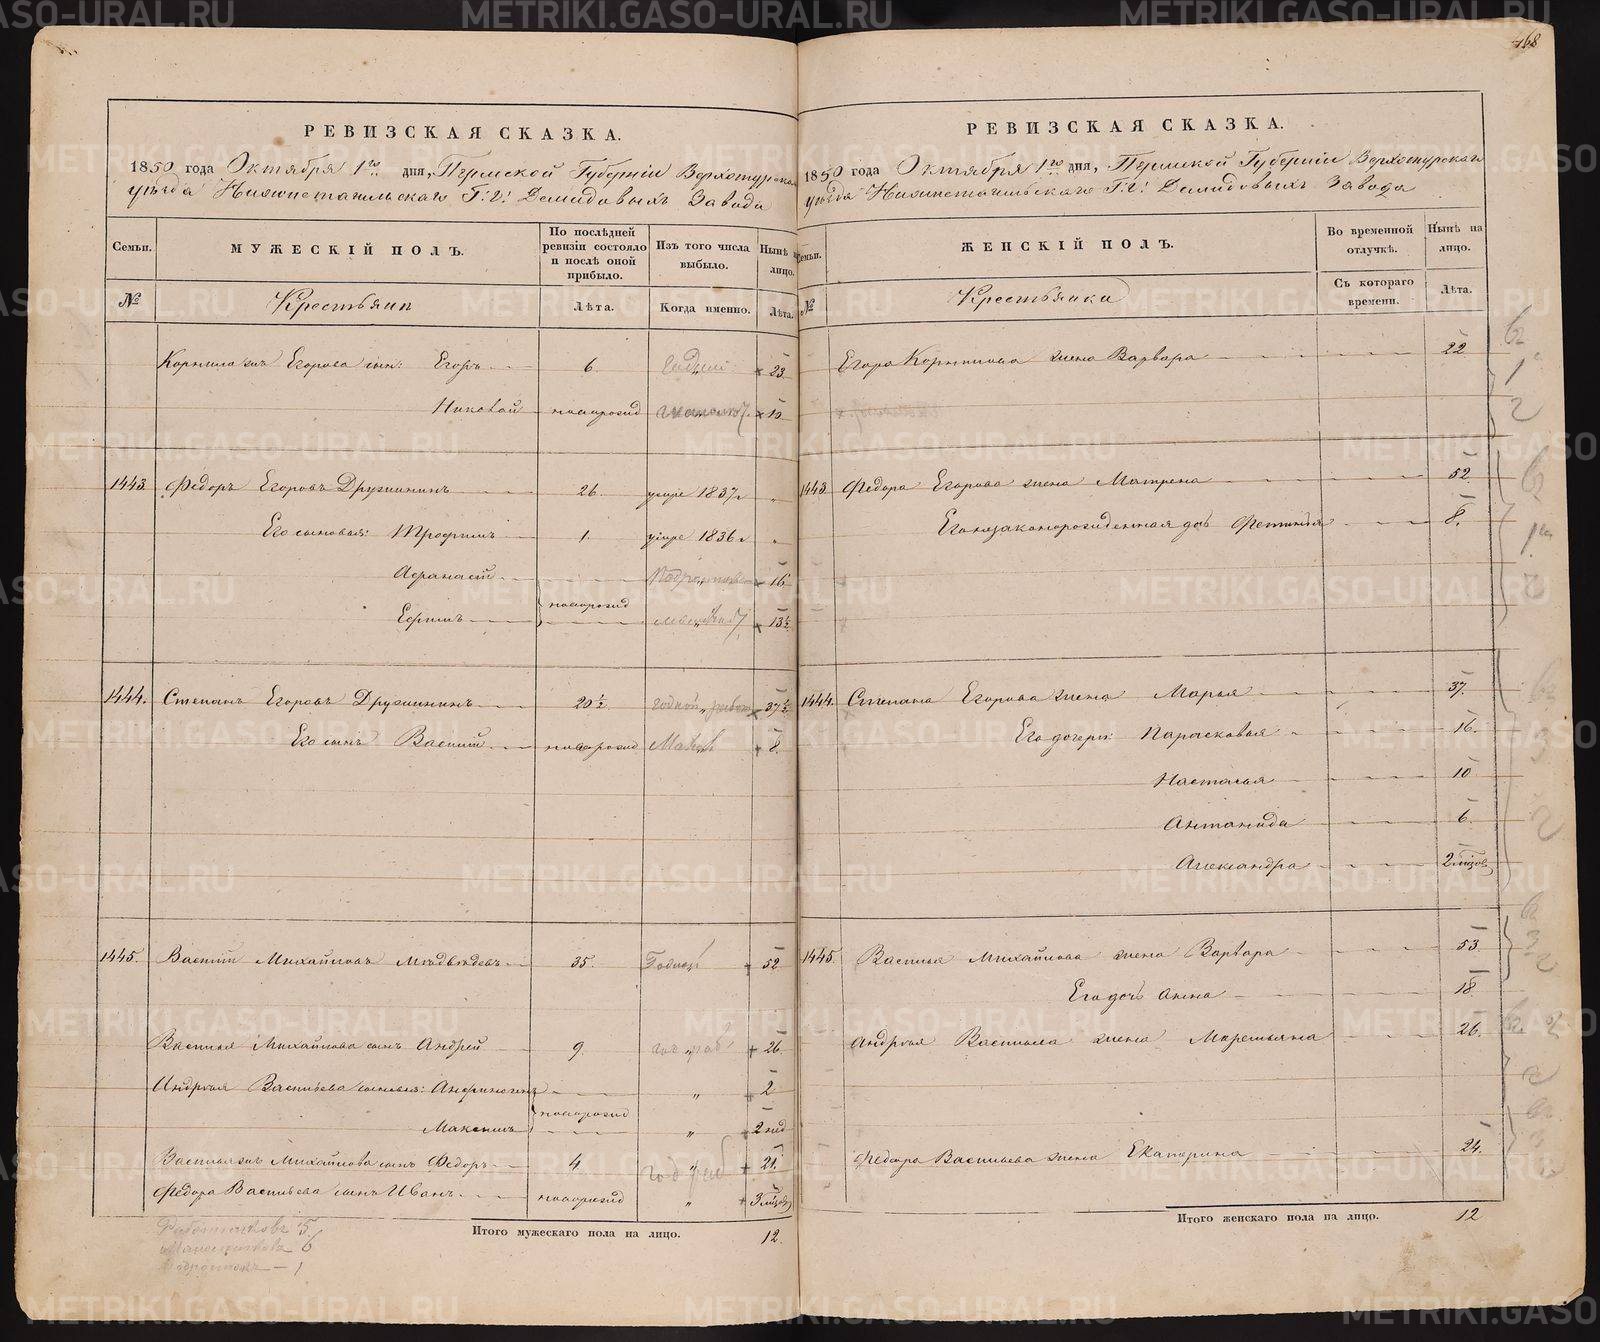 168
РЕВИЗСКАЯ СКАЗКА.
1850 года Октября 1го дня, Пермской Губерніи Верхотурска
уѣзда Нижнетагильскаго Г:г: Демидовыхъ Завода
Семьи. МУЖЕСКІЙ ПОЛЪ. По послѣдней ревизіи состояло и послѣ оной прибыло. Изъ того числа выбыло. Нынѣ лицо.
№ Крестьяни Лѣта. Когда именно. Лѣта.
Корнила жъ Егорова сын: Егоръ 6 Годный 23
новорожд 10
1443 Федоръ Егоровъ Дружининъ 26. умре 1837г „
Его сыновья: Трофимъ 1. умре 1836г „
Афанасій Подростокъ 16
новорожд
Ефимъ 13½
1444. Степанъ Егоровъ Дружининъ 20½ годной 37½
Его сынъ Василій новорожд Малол 8.
1445. Василій Михайловъ Медвѣдевъ 35. Годной 52
Василья Михайлова сынъ Андрей 9. год раб 26.
Андрея Васильева сыновья: Анфиногенъ „ 2
новорожд
Максимъ „ 2 нед
Василья жъ Михайлова сынъ Федоръ 4 год раб 21.
Федора Васильева сынъ Иванъ новорожд „ 3 мѣсов
Итого мужескаго пола на лицо. 12.
Работниковъ 5
Малолѣтковъ 6
Подростокъ — 1
РЕВИЗСКАЯ СКАЗКА.
1850 года Октября 1го дня, Пермской Губерніи Верхотурскаго
уѣзда Нижнетагильскаго Г:г: Демидовыхъ Завода
Семьи. ЖЕНСКІЙ ПОЛЪ. Во временной отлучкѣ. Нынѣ на лицо.
№ Крестьянки Съ котораго времени. Лѣта.
Егора Корнилова жена Варвара 22
1443. Федора Егорова жена Матрена 52.
Его незаконорожденная дочь Фетинья 8.
1444. Степана Егорова жена Марья 37.
Его дочери: Парасковья 16.
Настасья 10
Антонида 6.
Александра 2 мѣсов
1445. Василья Михайлова жена Варвара 53.
Его дочь Анна 18
Андрея Васильева жена Маремьяна 26.
Федора Васильева жена Екатерина 24.
Итого женскаго пола на лицо. 12
METRIKI.GASO-URAL.RU